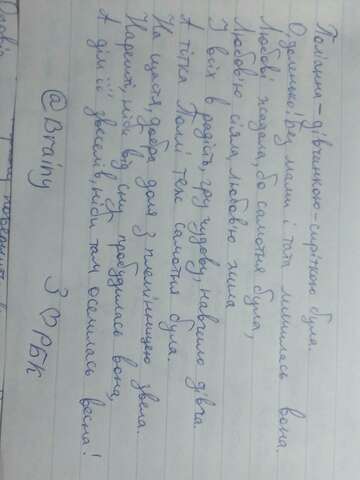 Поліанна – дівчинкою-сиріткою була.
О, доленько! Без мами і тата лишилась вона.
Любові жадала, бо самотня була,
Любов'ю сіяла, любов'ю жила
І всіх в радість, гру чудову, навчило дівча.
А тітка Поллі теж самотня була.
На щастя, добра доля з племінницею звела.
Нарешті, ніби від сну пробудилась вона,
А дім її звеселів, ніби там оселилась весна!
@Brainy З ♡ РБК